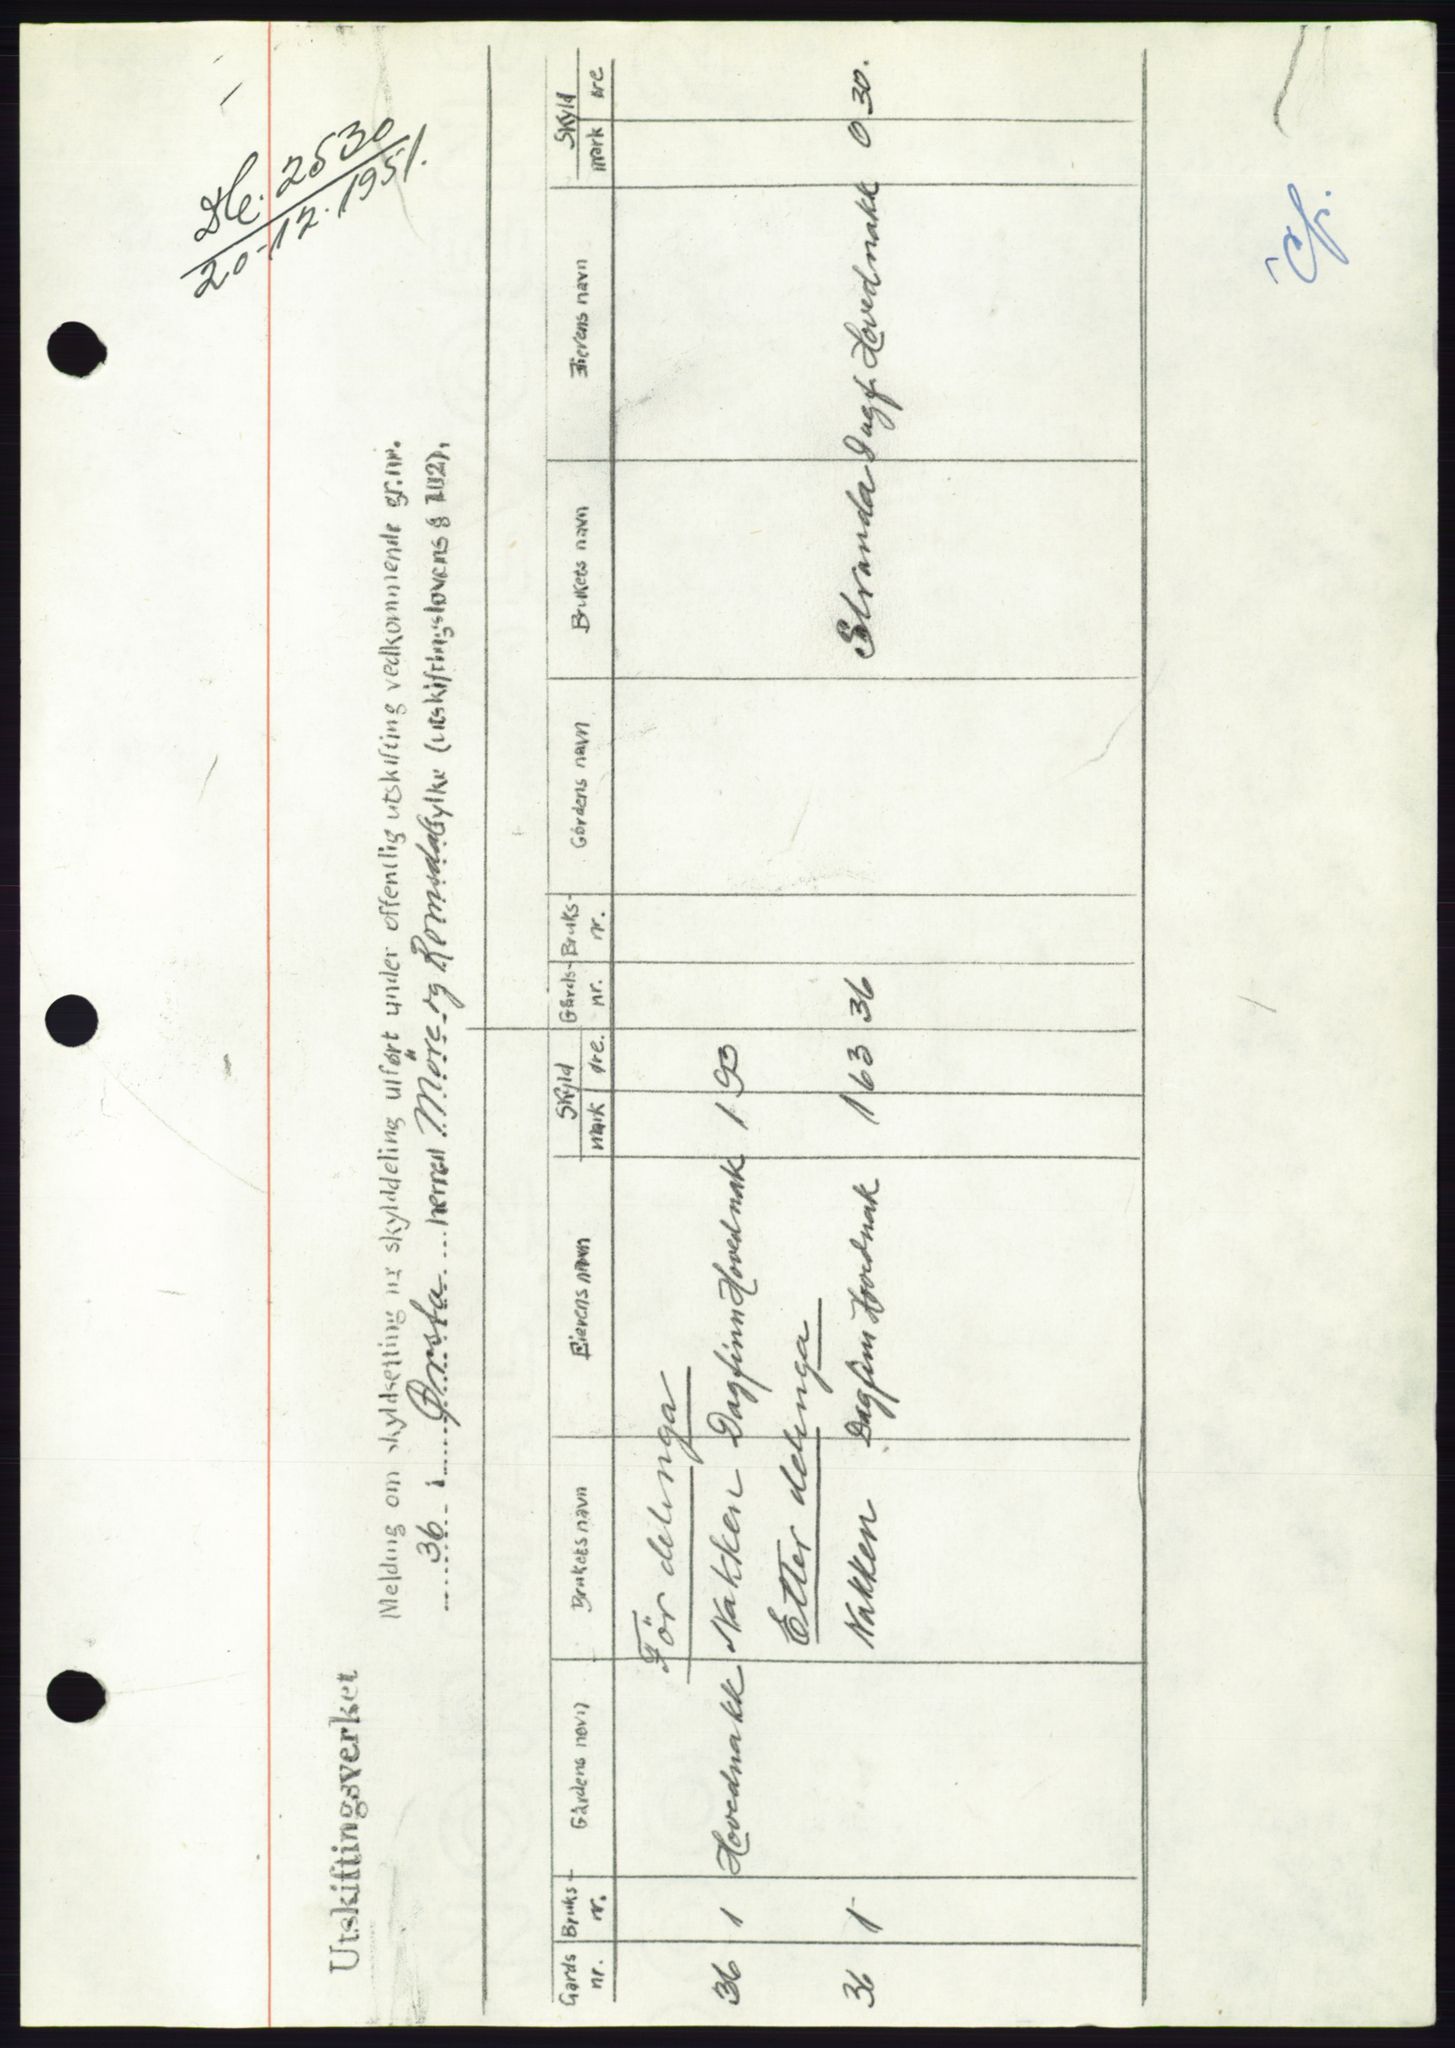 Dbl. 2530
20-12-1951.
Utskiftingsverket
Melding om skyldsetting og skylddeling utført under offentlig utskifting vedkommende gr.nr.
36 i Ørsta herred Möre og Romsdal fylke (utskiftingslovens § 102).
Gards nr. Bruks- nr. Gårdens navn Brukets navn Eierens navn Skyld mark øre. Gårds- nr. Bruks- nr. Gårdens navn Brukets navn Eierens navn Skyld mark øre
För delinga
36 1 Hovednakk Nakken Dagfinn Hovednak 1 93
Etter delinga
36 1 Nakken Dagfinn Hovednak 1 63 36 Stranda Dagf. Hovednakk 0 30.